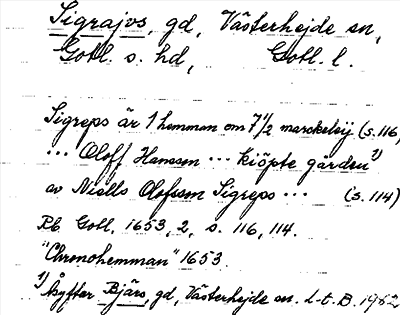 Sigrajvs, gd, Västerhejde sn,
Gotl. s. hd, Gotl. l.
Sigreps är 1 hemman om 7 1/2 marckeleij (s. 116)
... Oloff Hansson ... kiöpte gården 1)
av Niells Olofsson Sigreps ... (s. 114)
Rb Gotl. 1653, 2, s. 116, 114.
"Chronohemman" 1653.
1) Åsyftar Bjärs, gd, Västerhejde sn. L-t. B. 1962